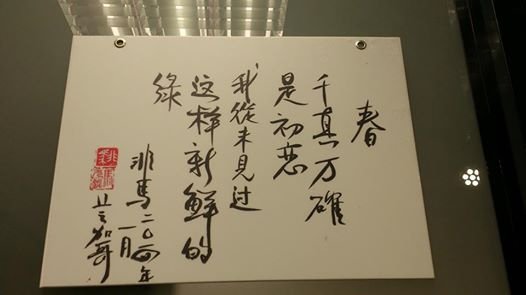 春
千真万確
是初恋
我從未見过
这样新鮮的
綠
非馬二〇一四年
一月
芝加哥